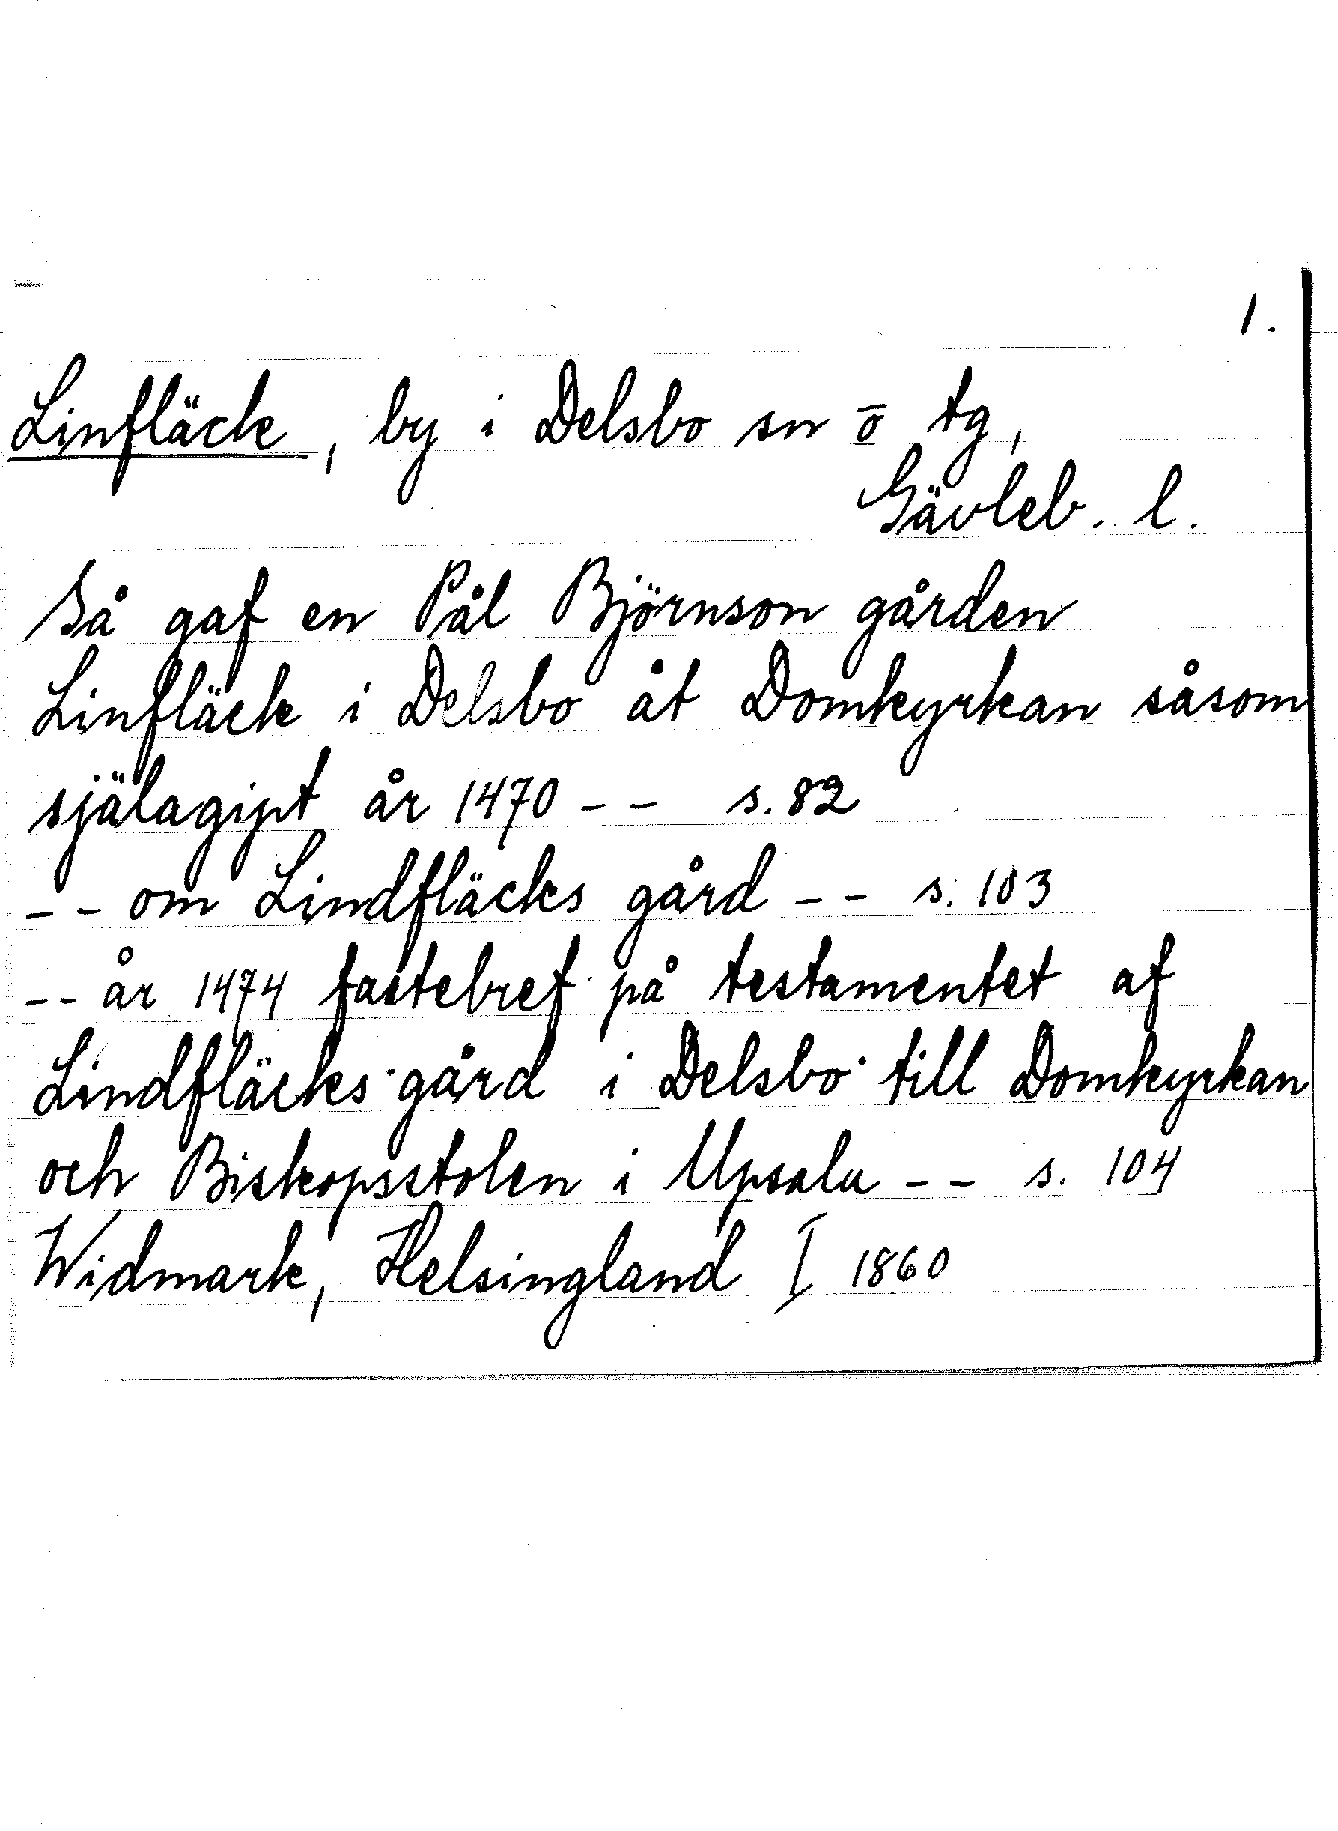 1.
Linfläck, by i Delsbo sn o tg,
Gävleb. l.
Så gaf en Pål Björnson gården
Linfläck i Delsbo åt Domkyrkan såsom
själagipt år 1470 - - s. 82
- - om Lindfläcks gård - - s. 103
- - år 1474 fastebref på testamentet af
Lindfläcks gård i Delsbo till Domkyrkan
och Biskopsstolen i Upsala - - s. 104
Widmark, Helsingland I 1860